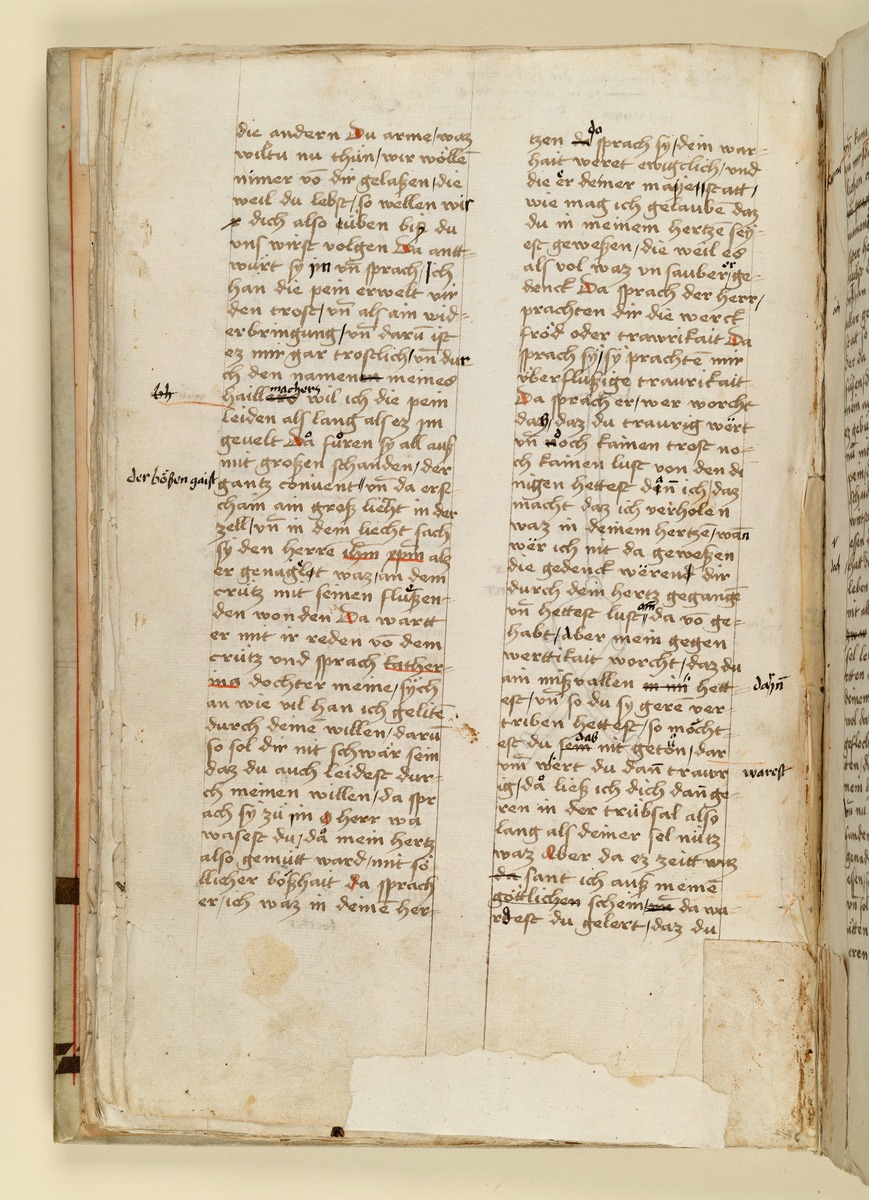 die andern Du arme / waz
wiltu nu thün / wir wöllē
nimer vō dir gelaßen / die
weil du lebst / so wellen wir
dich also üben biß du
vns wirst volgen Da antt=
würt sy im vn̄ sprach / Ich
han die pein erwelt vir
den trost / vn̄ als ain wid=
erbringung / vn̄ darū ist
ez mir gar trostlich / vn̄ dur
ch den namen meines
haillmachers wil ich die pein
leiden als lang als ez im
gevelt Da füren sy all auß
mit großen schanden / der
der bößen gaist
gantz convent // vn̄ da ersc
chain ain groß lieht in der
zell / vn̄ in dem liecht sach
sy den herre ihm xpm als
er genaglet waz / an dem
crütz mit seinen flüßen=
den wonden Da wartt
er mit ir reden vō dem
crütz vnd sprach kather=
ina dochter meine / sych
an wie vil han ich gelitē
durch deinē willen / darū
so sol dir nit schwär sein
daz du auch leidest dur=
ch meinen willen / da spr
ach sy zü im o herr wa
wasest du / da mein hertz
also gemütt ward / mit sö
llicher bößhait da sprach
er / ich waz in deinē her=
tzen da sprach sy / dein war=
hait weret ewigclich / vnd
die er deiner mayestatt /
wie mag ich gelaubē daz
du in meinem hertzē sey=
est geweßen / die weil es
als vol waz vn sauberer ge=
denck Da sprach der herr /
prachten dir die werck
fröd oder trawrikait Da
sprach sy / sy prachtē mir
überflüßige traurikait
Da sprach er / wer worcht
daß / daz du traurig wërt
vn̄ doch kainen trost no=
ch kainen lust von den di
nigen hettest dan̄ ich / daz
macht daz ich verholen
waz in deinem hertzē / wan
wër ich nit da geweßen
die gedenck wëren dir
durch dein hertz gegangē
vn̄ hettest lust / da vō ge=
habt / Aber mein gegen
werttikait worcht / daz du
ain mißvallen hett= dajn̄
est / vn̄ so du sy gere ver=
triben hettest / so möcht=
est du daß nit getön / dar
vm̄ wërt du dan̄ trawr warest
ig / da ließ ich dich dan̄ ge=
ren in der trübsal also
lang als deiner sel nütz
waz Aber da ez zeitt waz
sant ich auß meinē
göttlichen schein / da wa=
rdest du gelert / daz du